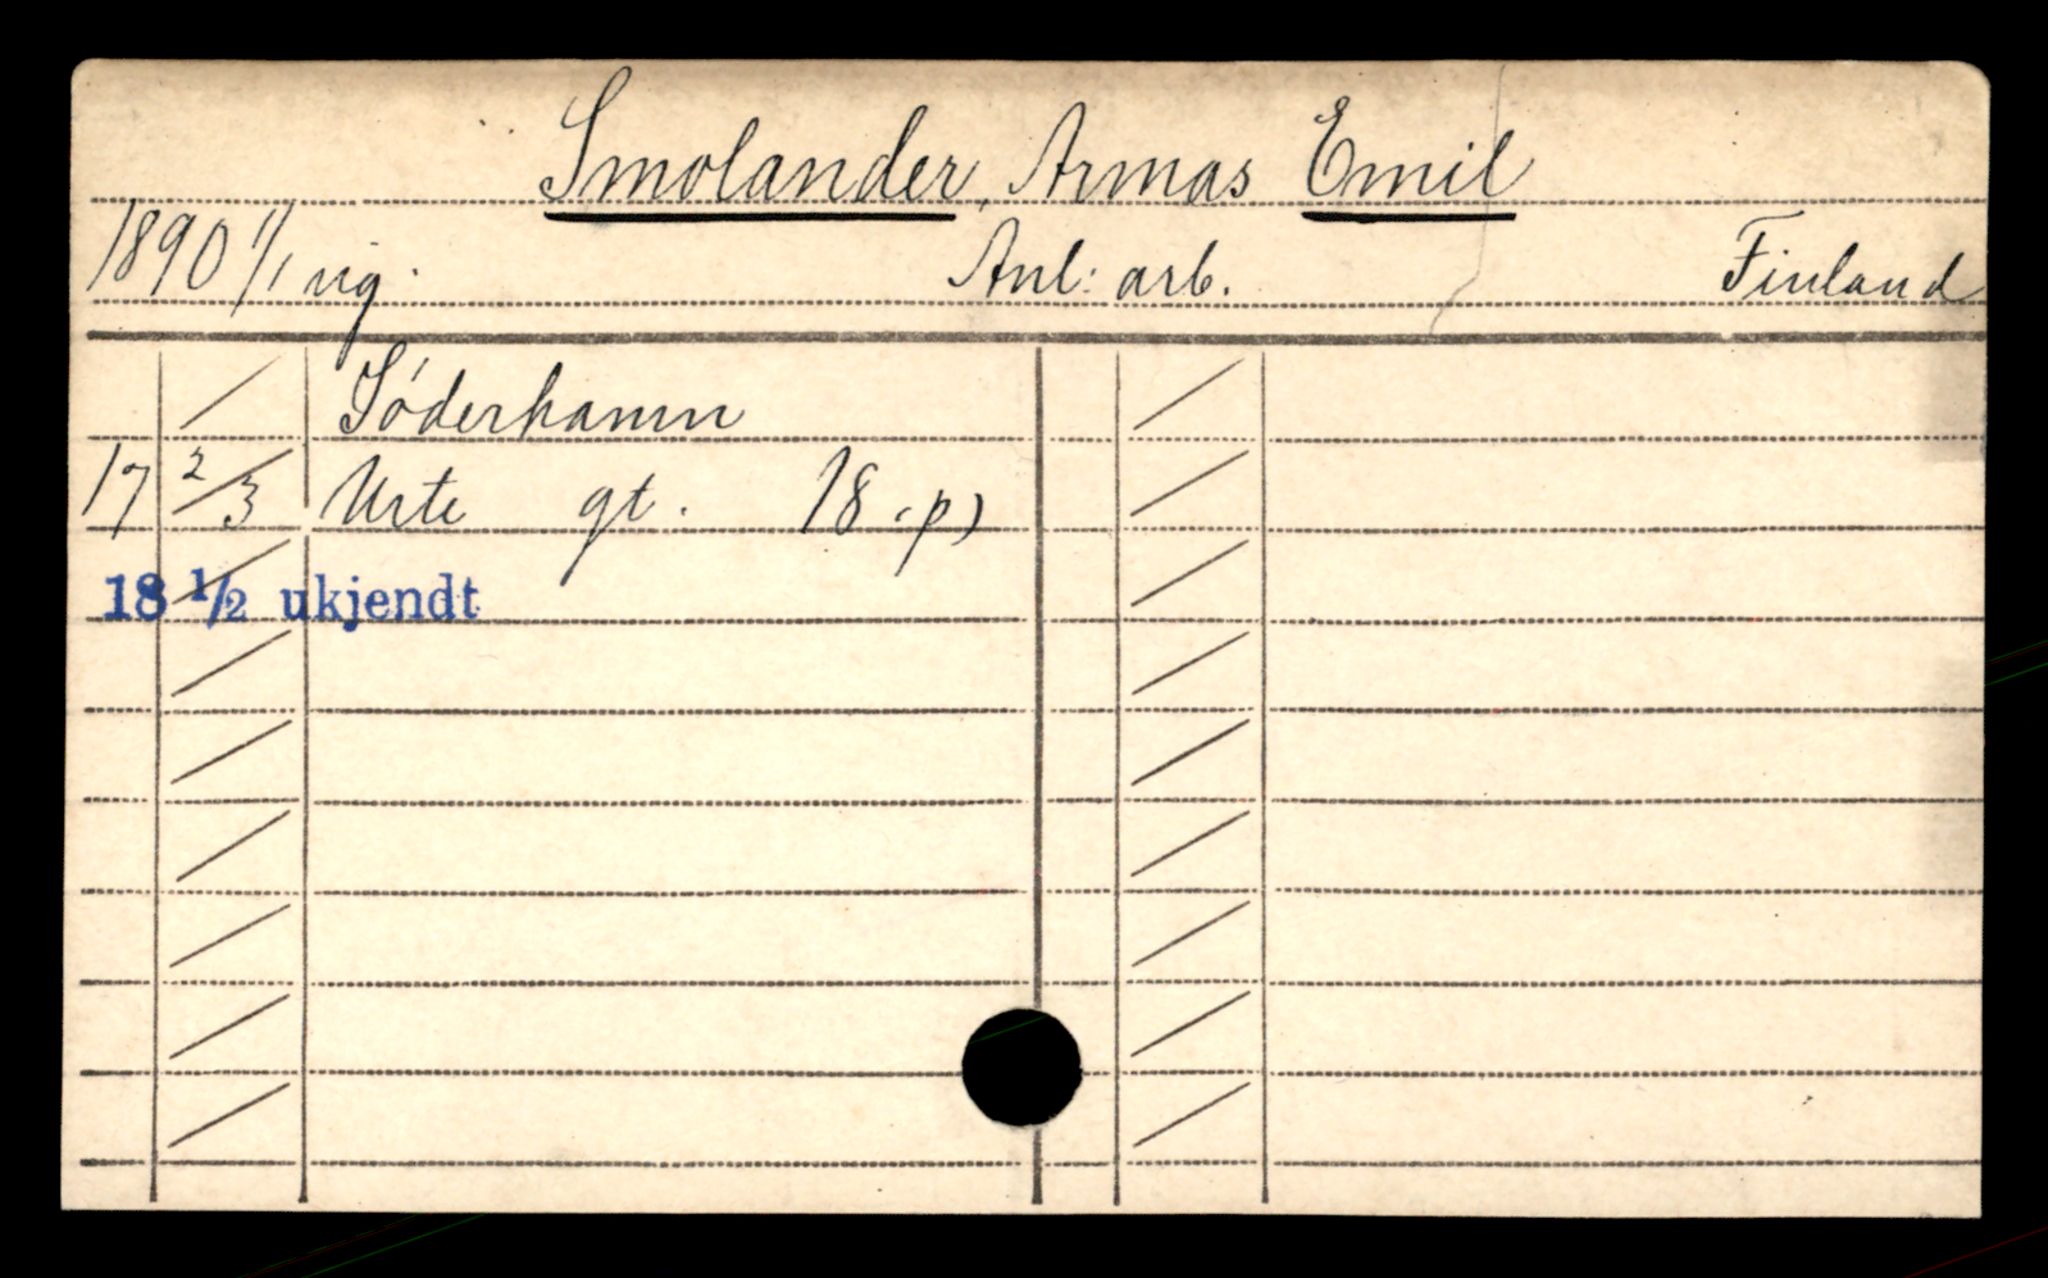 Smolander, Armas Emil
1890 1/1 ug. Anl: arb. Finland
Söderhamn
17 2/3 Urte gt. 18 p)
18 1/2 ukjendt